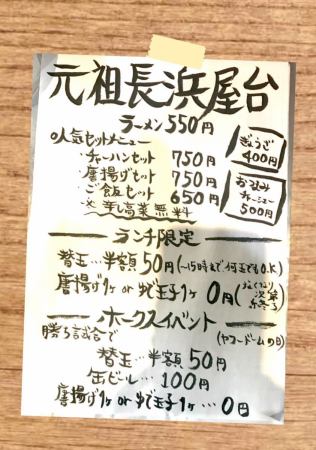 元祖長浜屋台
ラーメン550円
○人気セットメニュー
・チャーハンセット 750円
・唐揚げセット 750円
・ご飯セット 650円
※辛し高菜無料
ぎょうざ
400円
おつまみ
チャーシュー
500円
ランチ限定
替玉…半額50円(~15時まで何玉でもO.K)
唐揚げ1ヶorゆで玉子1ヶ 0円(なくなり
次第
終了)
ホークスイベント
勝ち試合で
(ヤフードームの日)
替玉…半額50円
缶ビール…100円
唐揚げ1ヶorゆで玉子1ヶ…0円